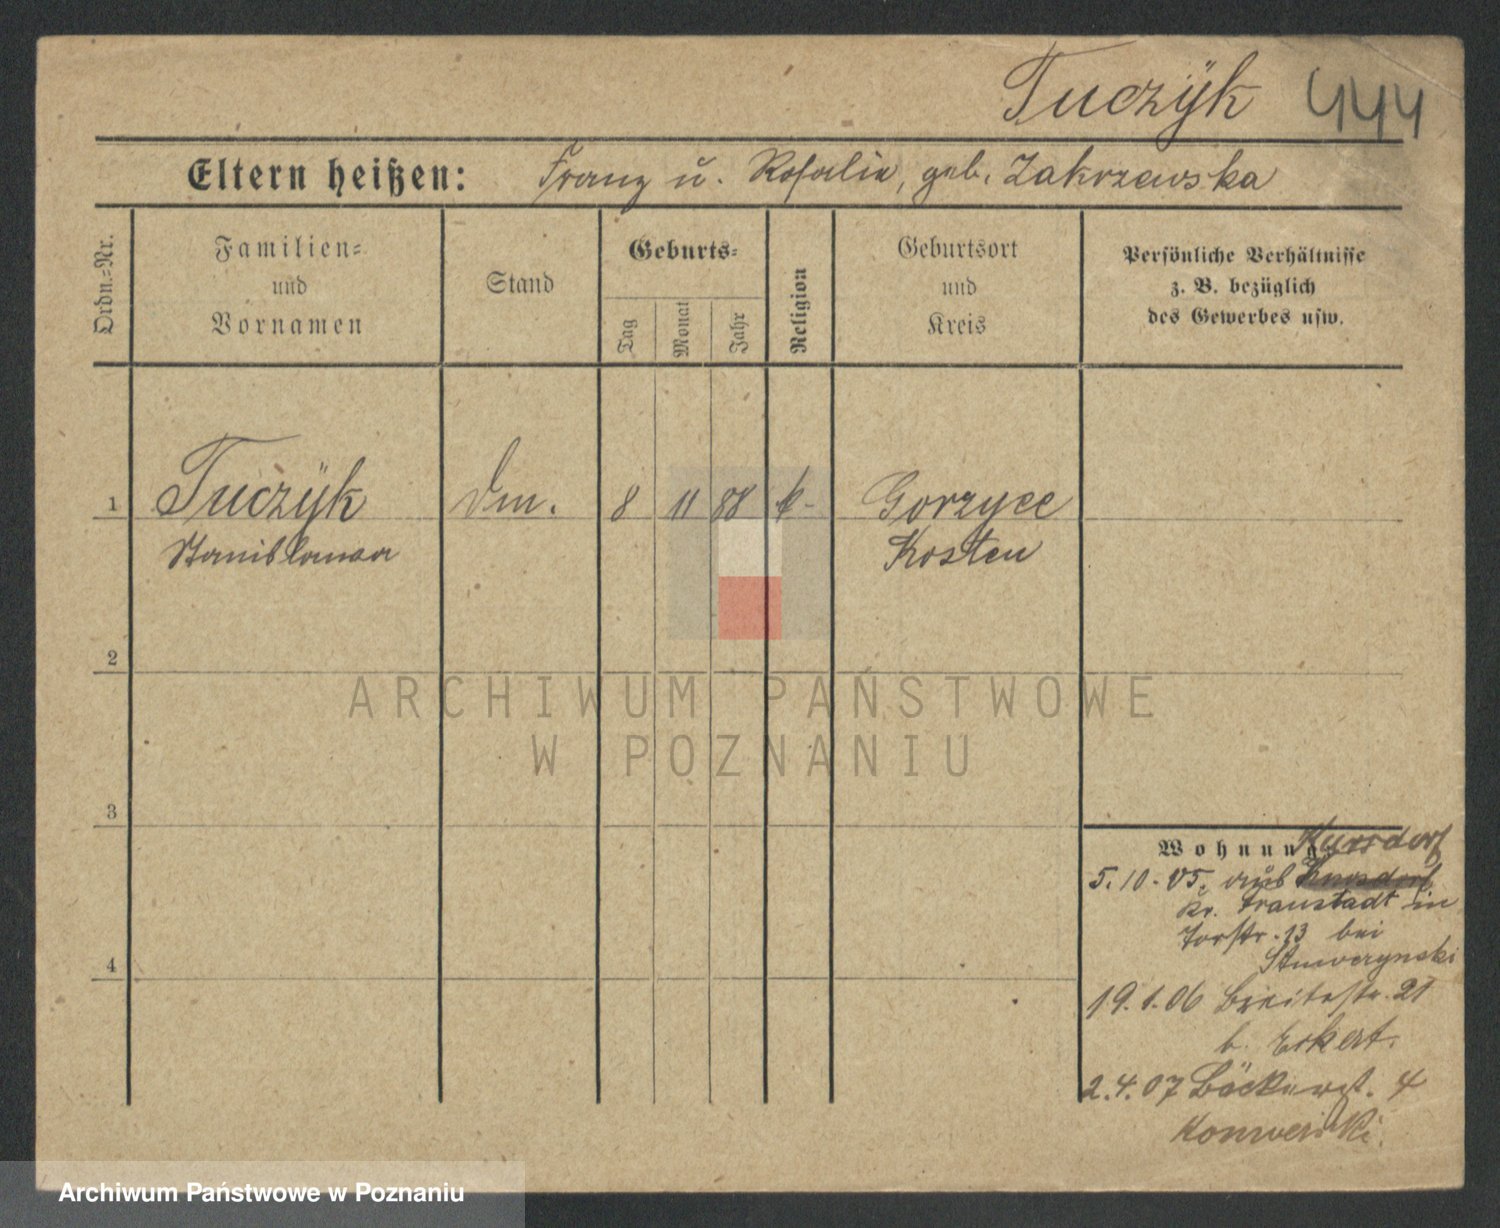 Tuczÿk 444
Eltern heißen: Franz u. Rosalie, geb. Zakrzewska
Ordn.=Nr.
Familien=
und
Vornamen
Stand
Geburts=
Tag
Monat
Jahr
Religion
Geburtsort
und
Kreis
Persönliche Verhältnisse
z. B. bezüglich
des Gewerbes usw.
1 Tuczÿk Dm. 8 11 88 k- Gorzyce
Stanislawa Kosten
2
3
4
Wohnung Kursdorf
5.10.05. aus Kursdorf
Kr. Fraustadt in
Torstr. 13 bei
19.1.06 Breitestr. 21
b. Eckert.
2.4.07 Bäckerst. 4
ARCHIWUM PAŃSTWOWE
W POZNANIU
Archiwum Państwowe w Poznaniu